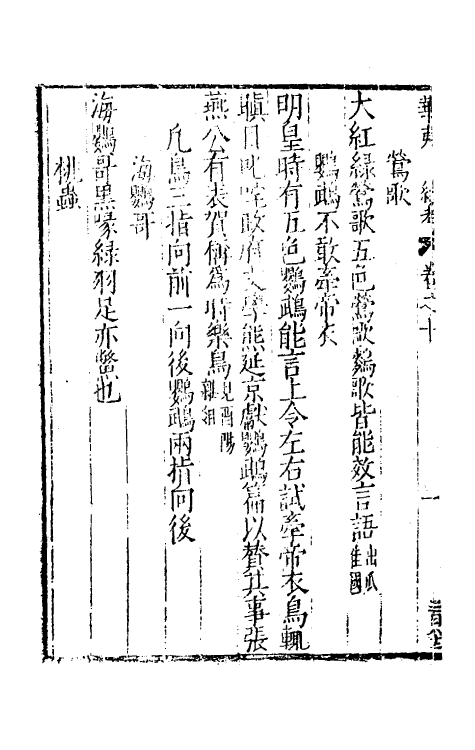 鶯歌
大紅綠鶯歌五色鶯歌鷯歌皆能效言語出爪哇國
鸚鵡不敢牽帝衣
明皇時有五色鸚鵡能言上令左右試牽帝衣鳥輒
瞋目叱咤岐府文學熊延京獻鸚鵡篇以贊其事張
燕公有表賀稱為時樂鳥見酉陽雜俎
凡鳥三指向前一向後鸚鵡兩指向後
海鸚哥
海鸚哥黑喙綠羽足亦鱉也
桃蟲
卷之十
一